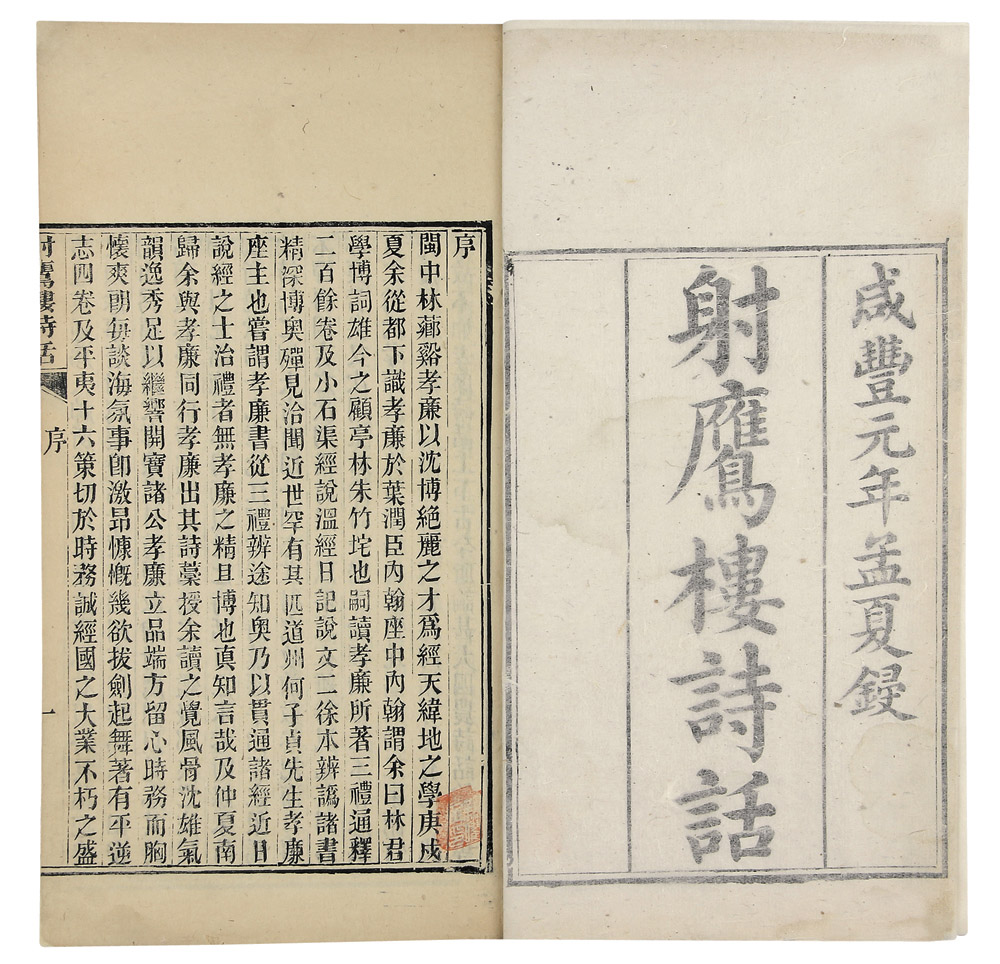 咸豐元年孟夏鋟
射鷹樓詩話
序
閩中林薌谿孝廉以沈博絕麗之才爲經天緯地之學庚戌
夏余從都下識孝廉於葉潤臣內翰座中內翰謂余曰林君
學博詞雄今之顧亭林朱竹垞也嗣讀孝廉所著三禮通釋
二百餘卷及小石渠經說溫經日記說文二徐本辨譌諸書
精深博奧殫見洽聞近世罕有其匹道州何子貞先生孝廉
座主也嘗謂孝廉書從三禮辨途知奧乃以貫通諸經近日
說經之士治禮者無孝廉之精且博也真知言哉及仲夏南
歸余與孝廉同行孝廉出其詩藁授余讀之覺風骨沈雄氣
韻逸秀足以繼響開寶諸公孝廉立品端方留心時務而胸
懷爽朗每談海氛事卽激昂慷慨幾欲拔劍起舞著有平逆
志四卷及平夷十六策切於時務誠經國之大業不朽之盛
射鷹樓詩話 序 一